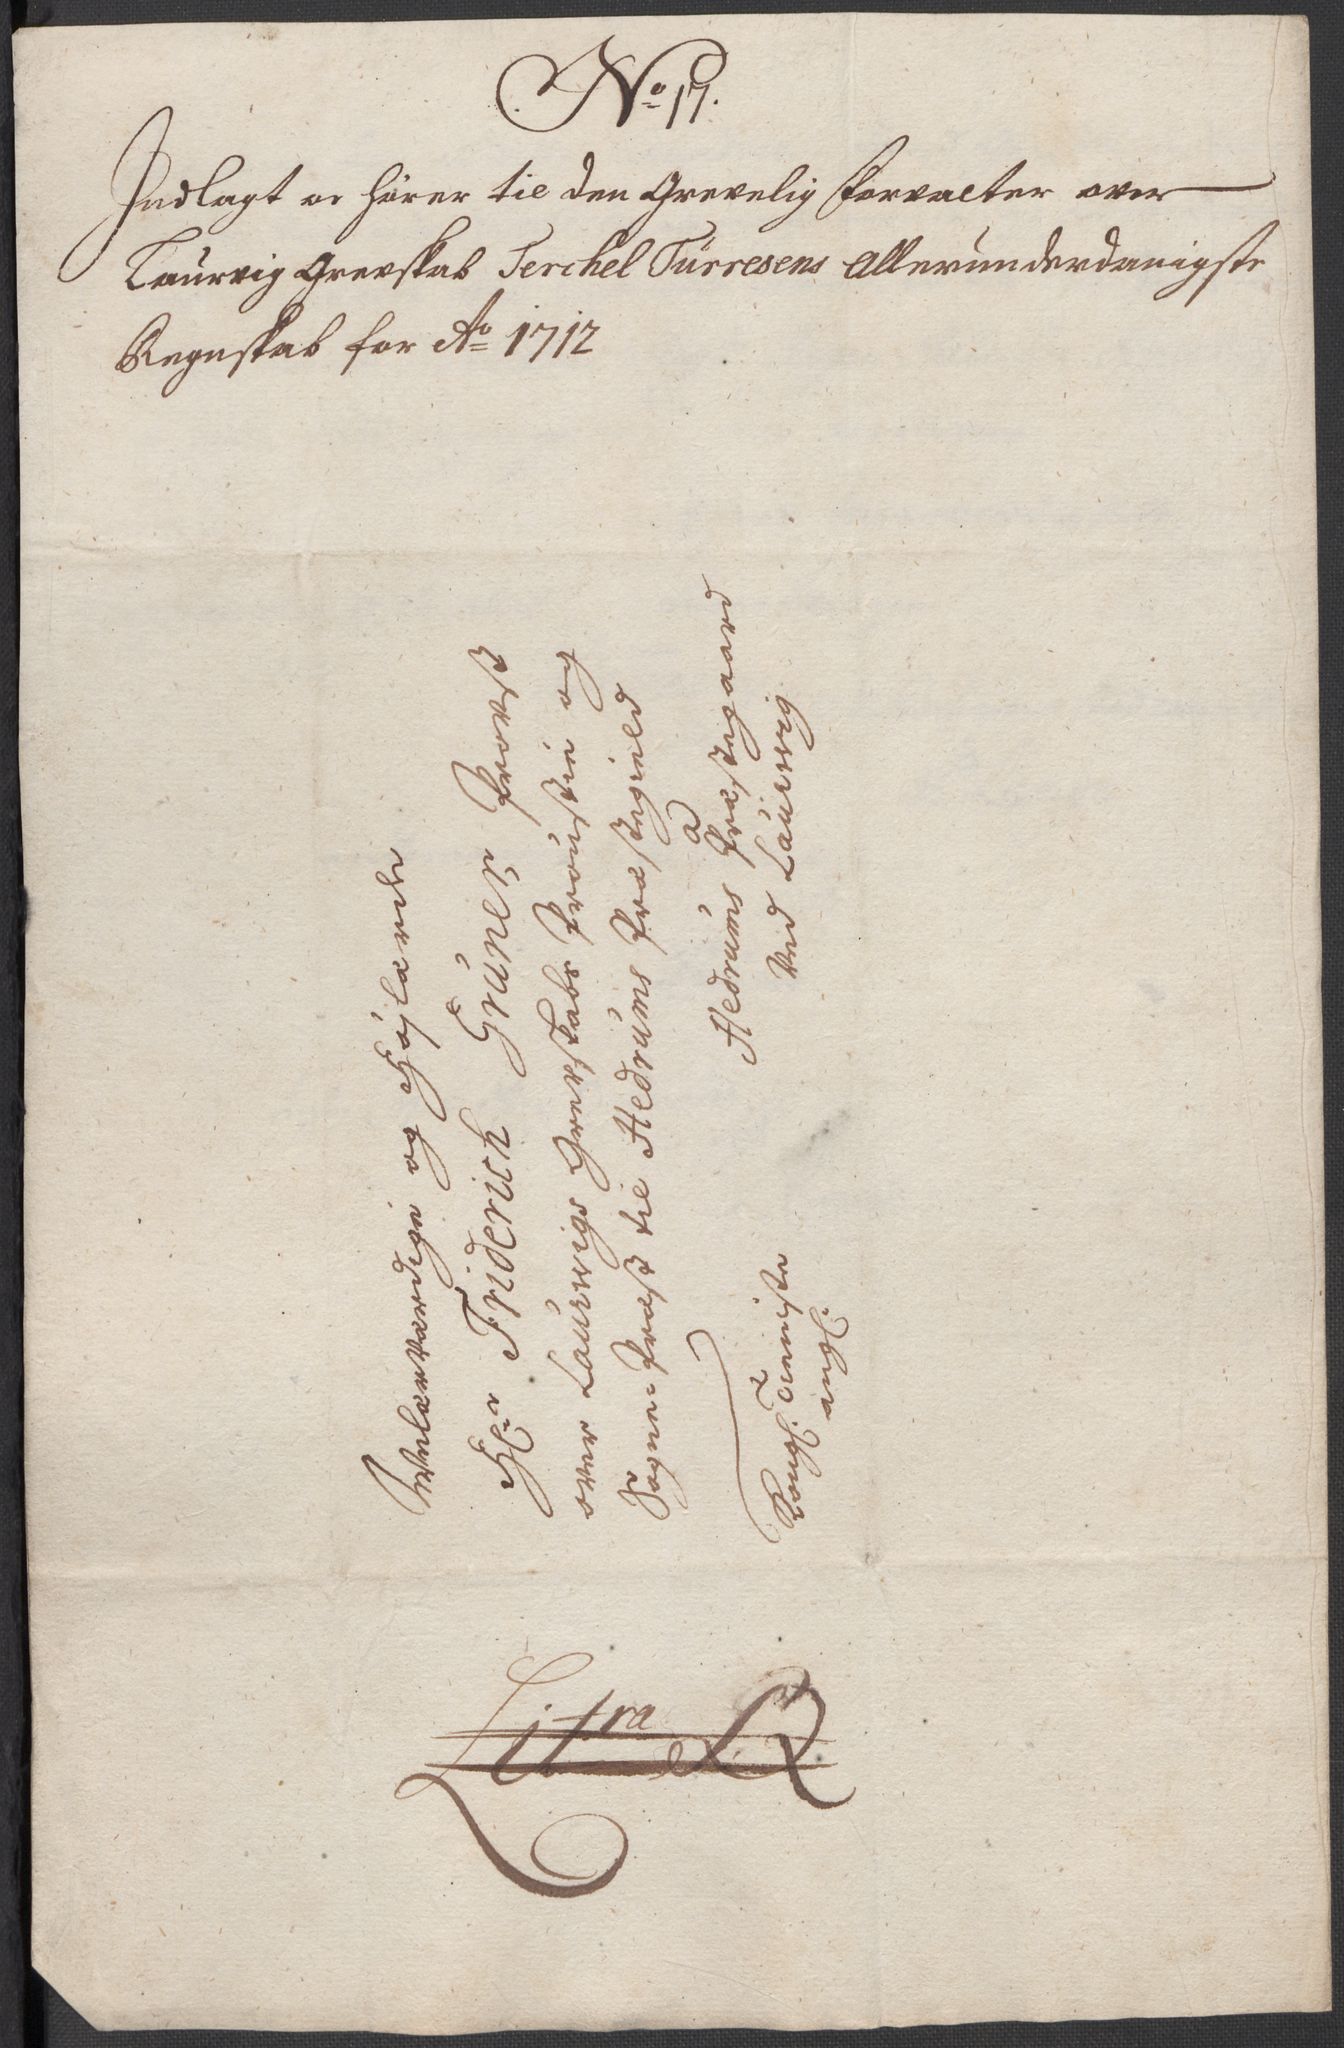 No 17.
Indlagt oc hörer til den Grevelig forvalter over
Laurvig Grevskab Terchel Türresens Allerunderdanigste
Regnskab for Ao 1712
Welærværdige og Höjlærde
Hr Friderich Grüner Provst
over Laurwigs Grevskabs Proustie og
Sogne Præst til Hedrums Præstegield
a
Hedrums Præstegaard
Ved Laurwig
Kongl. Tieniste
angl:
Litra R